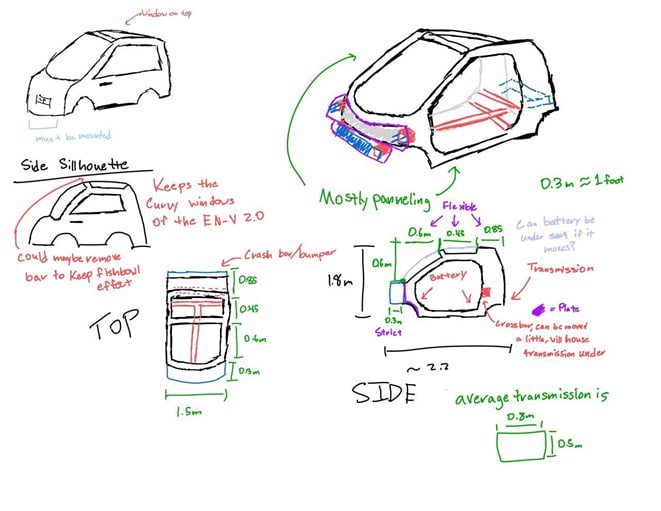 Window on top
must be mounted
Side Sillhouette
Keeps the
Curvy windows
of the EN-V 2.0
Could maybe remove
bar to Keep fishbowl
effect
TOP
Crash bar/bumper
0.85
0.45
0.6m
0.3m
1.5m
Mostly panneling
0.3m ≈ 1 foot
Flexible
0.6m
0.45
0.85
Can battery be
under seat if it
moves?
0.6m
1.8m
Battery
Transmission
= Plate
0.3m
Strict
Crossbar, can be moved
a little, will house
transmission under
~ 2.2
SIDE
average transmission is
0.8m
0.5m